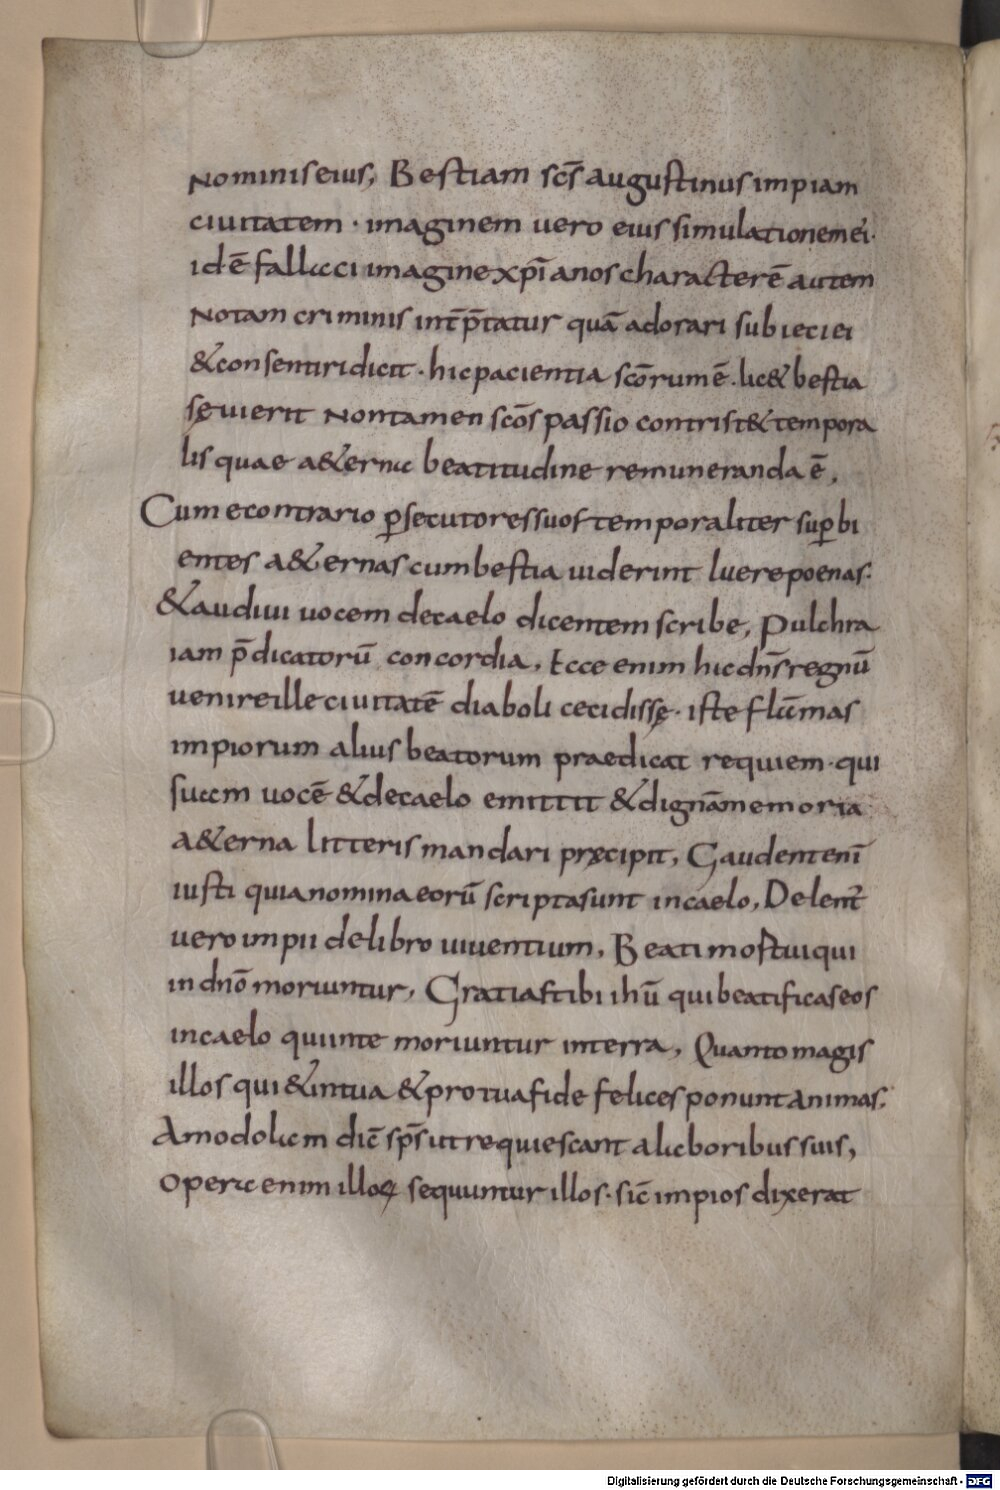 nominis eius, Bestiam scs̄ augustinus impiam
ciuitatem · imaginem uero eius simulationem ei·
id ē fallaci imagine xp̄ianos characterē autem
notam criminis int̄p̄tatur quā adorari subieci ei
& consentiri dicit · hic pacientia scōrum ē · lic& bestia
sęuierit non tamen scōs passio contrist& tempora
lis quae a&erna beatitudine remuneranda ē,
Cum e contrario p̱secutores suos temporaliter sup̱bi
entes a&ernas cum bestia uiderint luere poenas·
& audiui uocem de caelo dicentem scribe, Pulchra
iam p̄dicatorū concordia, Ecce enim hic dn̄s regnū
uenire ille ciuitatē diaboli cecidissę · iste flāmas
impiorum alius beatorum praedicat requiem · qui
suam uocē & de caelo emittit & dignā memoria
a&erna litteris mandari pręcipit, Gaudent eni͞
iusti quia nomina eorū scripta sunt in caelo, Delent̄
uero impii de libro uiuentium, Beati mortui qui
in dn̄o moriuntur, Gratias tibi ih̄u qui beatificas eos
in caelo qui in te moriuntur in terra, Quanto magis
illos qui & in tua & pro tua fide felices ponunt animas·
Amodo iam dic̄ sp̄s ut requiescant a laboribus suis,
Opera enim illoꝝ sequuntur illos · sic̄ impios dixerat
Digitalisierung gefördert durch die Deutsche Forschungsgemeinschaft - DFG